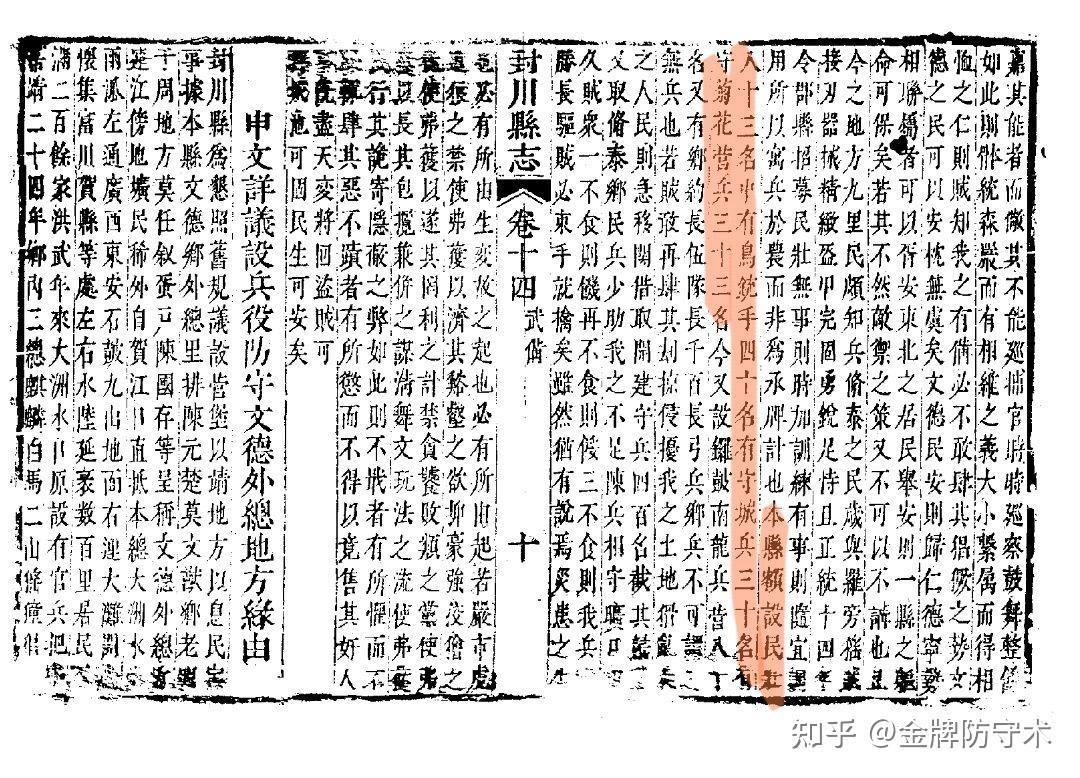 嘉其能者而懲其不能巡捕官時時巡察鼓舞整
如此則体統森嚴而有相維之義大小繫属而得相
恤之仁則賊知我之有備必不敢肆其猖獗之势文
德之民可以安枕無虞矣文德民安則歸仁德寧
相聯者可以胥安東北之居民舉安則一縣之
命可保矣若其不然敵禦之策又不可以不講也
今之地方九里民頗知兵脩泰之民歲與羅旁猺
接刃器械精緻盔甲完固勇銳足恃且正統十四
令郡縣招募民壯無事則時加訓練有事則隨宜調
用所以寓兵於農而非爲承牌計也本縣額設民壯
八十三名中有鳥銃手四十名有守城兵三十名有
守菊花营兵三十三名今又設鑼鼓南龍兵营八十
名又有鄉約長伍隊長千百長弓兵鄉兵不可
無兵也若賊敢再肆其刦掠侵擾我之土地
之人民則急移関借取開建守兵四百名截其
又取脩泰鄉民兵少助我之不足陳兵相守曠日
久賊衆一不食則饑再不食則倭三不食則我兵
勝長驅賊必束手就擒矣雖然猶有說焉災患之生
封川縣志
卷十四 武俻
十
也必有所由生變故之起也必有所由起若嚴市處
之禁使弗獲以濟其谿壑之欲抑豪強
使弗獲以遂其罔利之計禁貪饕敗類之黨使
以長其包攬兼併之謀清舞文玩法之流使弗
行其詭寄隱蔽之弊如此則不戢者有所懼而不
肆其惡不蹟者有所懲而不得以竟售其奸人
盡天變將回盜賊可
池可固民生可安矣
申文詳議設兵役防守文德外總地方緣由
封川縣爲懇照舊規議設营堡以靖地方以息民
事據本縣文德鄉外總里排陳元楚莫文獻鄉老
于周地方莫任叙蛋戸陳國存等呈稱文德外總
江傍地壙民稀外自賀江口直抵本總大洲水
兩𠂇左通廣西東安石皷九出地面右浬大灘開
懷集富川賀縣等處左右水陸延袤数百里居民
滿二百餘家洪武年來大洲水口原設有官兵把
嘉靖二十四年鄉内三總麒麟白馬二山
知乎 @金牌防守术